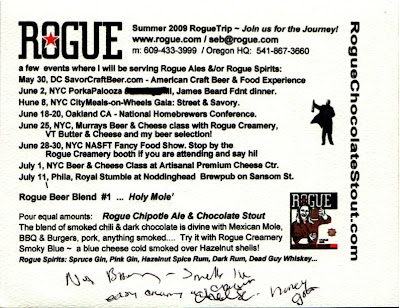 ROGUE
Summer 2009 RogueTrip ~ Join us for the Journey!
www.rogue.com / seb@rogue.com
m: 609-433-3999 / Oregon HQ: 541-867-3660
a few events where I will be serving Rogue Ales &/or Rogue Spirits:
May 30, DC SavorCraftBeer.com - American Craft Beer & Food Experience
June 2, NYC PorkaPalooza ll, James Beard Fdnt dinner.
Hune 8, NYC CityMeals-on-Wheels Gala: Street & Savory.
June 18-20, Oakland CA - National Homebrewers Conference.
June 25, NYC, Murrays Beer & Cheese class with Rogue Creamery,
VT Butter & Cheese and my beer selection!
June 28-30, NYC NASFT Fancy Food Show. Stop by the
Rogue Creamery booth if you are attending and say hi!
July 1, NYC Beer & Cheese Class at Artisanal Premium Cheese Ctr.
July 11, Phila, Royal Stumble at Noddinghead Brewpub on Sansom St.
RogueChocolateStout.com
Rogue Beer Blend #1 ... Holy Mole'
ROGUE
Pour equal amounts: Rogue Chipotle Ale & Chocolate Stout
The blend of smoked chili & dark chocolate is divine with Mexican Mole,
BBQ & Burgers, pork, anything smoked.... Try it with Rogue Creamery
Smoky Blue ~ a blue cheese cold smoked over Hazelnut shells!
Rogue Spirits: Spruce Gin, Pink Gin, Hazelnut Spice Rum, Dark Rum, Dead Guy Whiskey...
creamy
cheese